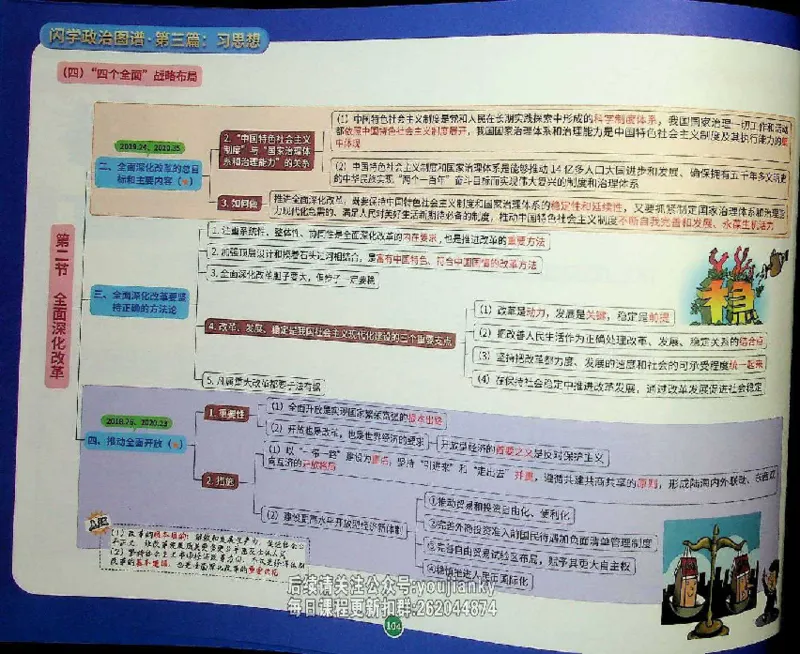 闪学政治图谱·第三篇：习思想
（四）“四个全面”战略布局
第二节 全面深化改革
2019.24、2020.35
二、全面深化改革的总目
标和主要内容（★）
2.“中国特色社会主义
制度”与“国家治理体
系和治理能力”的关系
（1）中国特色社会主义制度是党和人民在长期实践探索中形成的科学制度体系，我国国家治理一切工作和活动
都依照中国特色社会主义制度展开，我国国家治理体系和治理能力是中国特色社会主义制度及其执行能力的集
中体现
（2）中国特色社会主义制度和国家治理体系是能够推动14亿多人口大国进步和发展、确保拥有五千年多文明史
的中华民族实现“两个一百年”奋斗目标而实现伟大复兴的制度和治理体系
3. 如何做
推进全面深化改革，既要保持中国特色社会主义制度和国家治理体系的稳定性和延续性，又要抓紧制定国家治理体系和治理能
力现代化急需的、满足人民对美好生活新期待必备的制度，推动中国特色社会主义制度不断自我完善和发展、永葆生机活力
三、全面深化改革要坚
持正确的方法论
1. 注重系统性、整体性、协同性是全面深化改革的内在要求，也是推进改革的重要方法
2. 加强顶层设计和摸着石头过河相结合，是富有中国特色、符合中国国情的改革方法
3. 全面深化改革胆子要大，但步子一定要稳
4. 改革、发展、稳定是我国社会主义现代化建设的三个重要支点
（1）改革是动力，发展是关键，稳定是前提
（2）把改善人民生活作为正确处理改革、发展、稳定关系的结合点
（3）坚持把改革的力度、发展的速度和社会的可承受程度统一起来
（4）在保持社会稳定中推进改革发展，通过改革发展促进社会稳定
5. 凡属重大改革都要于法有据
稳
2018.26、2020.23
四、推动全面开放（★）
1. 重要性
（1）全面开放是实现国家繁荣富强的根本出路
（2）开放也是改革，也是世界经济的要求
开放是经济的首要之义是反对保护主义
2. 措施
（1）以“一带一路”建设为重点，坚持“引进来”和“走出去”并重，遵循共建共商共享的原则，形成陆海内外联动、东西双
向互济的开放格局
（2）建设更高水平开放型经济新体制
①推动贸易和投资自由化、便利化
②完善外商投资准入前国民待遇加负面清单管理制度
③完善自由贸易试验区布局，赋予其更大自主权
④稳慎地进人民币国际化
后续请关注公众号:youjianky
每日课程更新扣群:262044874
104